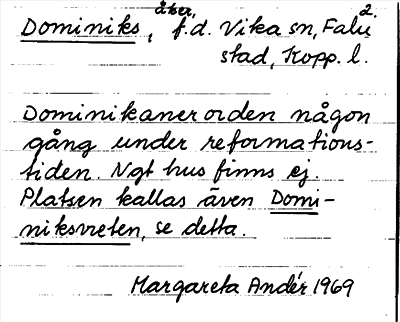 2.
Dominiks, åker, f.d. Vika sn, Falu
stad, Kopp. l.
Dominikanerorden någon
gång under reformations-
tiden. Ngt hus finns ej.
Platsen kallas även Domi-
niksvreten, se detta.
Margareta Andér 1969